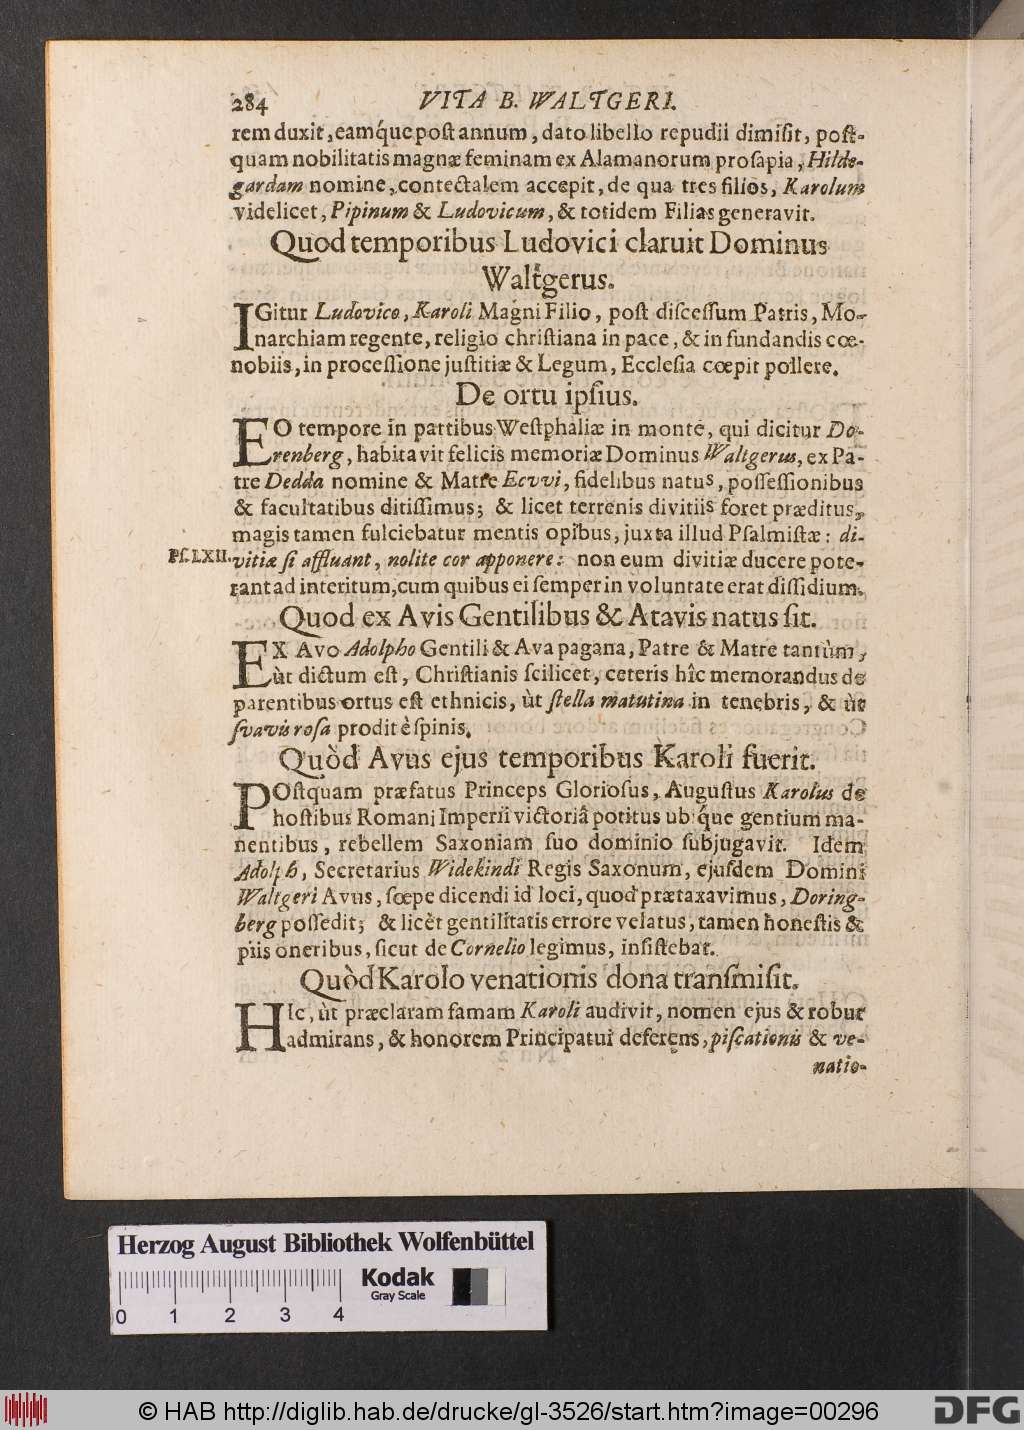 284 VITA B. WALTGERI.
rem duxit, eamq́ue poſt annum, dato libello repudii dimiſit, poſt-
quam nobilitatis magnæ feminam ex Alamanorum proſapia, Hilde-
gardam nomine, contectalem accepit, de qua tres filios, Karolum
videlicet, Pipinum & Ludovicum, & totidem Filias generavit.
Quod temporibus Ludovici claruit Dominus
Waltgerus.
IGitur Ludovico, Karoli Magni Filio, poſt diſceſſum Patris, Mo-
narchiam regente, religio chriſtiana in pace, & in fundandis cœ-
nobiis, in proceſſione juſtitiæ & Legum, Eccleſia cœpit pollere.
De ortu ipſius.
EO tempore in partibus Weſtphaliæ in monte, qui dicitur Do-
renberg, habitavit felicis memoriæ Dominus Waltgerus, ex Pa-
tre Dedda nomine & Matre Ecvvi, fidelibus natus, poſſeſſionibus
& facultatibus ditiſſimus; & licet terrenis divitiis foret præditus,
magis tamen fulciebatur mentis opibus, juxta illud Pſalmiſtæ: di-
Pſ. LXII. vitiæ ſi affluant, nolite cor apponere: non eum divitiæ ducere pote-
rant ad interitum, cum quibus ei ſemper in voluntate erat diſſidium.
Quod ex Avis Gentilibus & Atavis natus ſit.
EX Avo Adolpho Gentili & Ava pagana, Patre & Matre tantùm,
ùt dictum eſt, Chriſtianis ſcilicet, ceteris hîc memorandus de
parentibus ortus eſt ethnicis, ùt ſtella matutina in tenebris, & ùt
ſvavis roſa prodit è ſpinis.
Quòd Avus ejus temporibus Karoli fuerit.
POſtquam præfatus Princeps Glorioſus, Auguſtus Karolus de
hoſtibus Romani Imperii victoriâ potitus ubiq́ue gentium ma-
nentibus, rebellem Saxoniam ſuo dominio ſubjugavit. Idem
Adolph, Secretarius Widekindi Regis Saxonum, ejuſdem Domini
Waltgeri Avus, ſœpe dicendi id loci, quod prætaxavimus, Doring-
berg poſſedit; & licèt gentilitatis errore velatus, tamen honeſtis &
piis oneribus, ſicut de Cornelio legimus, inſiſtebat.
Quòd Karolo venationis dona tranſmiſit.
HIc, ùt præclaram famam Karoli audivit, nomen ejus & robur
admirans, & honorem Principatui deferens, piſcationis & ve-
natio-
Herzog August Bibliothek Wolfenbüttel
Kodak
Gray Scale
0 1 2 3 4
© HAB http://diglib.hab.de/drucke/gl-3526/start.htm?image=00296
DFG